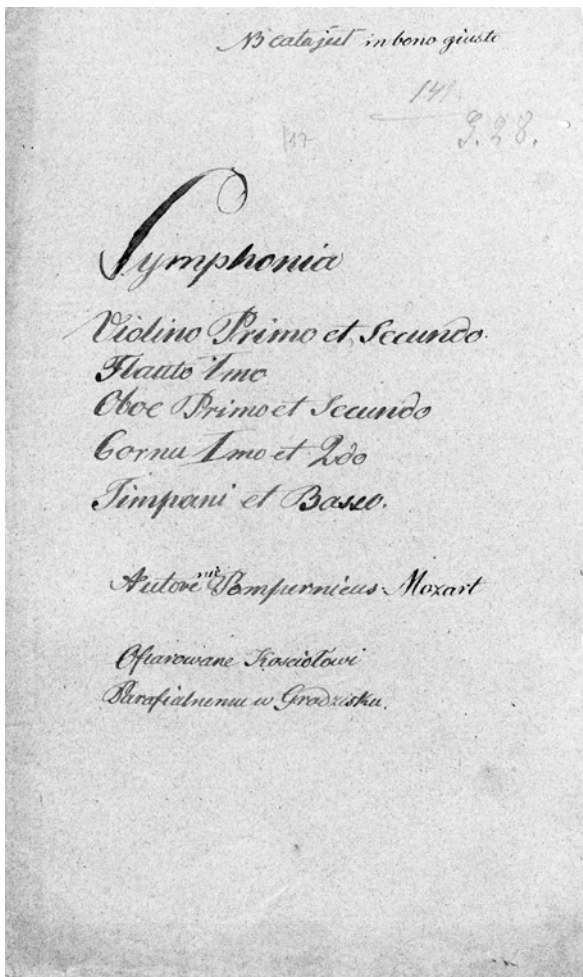 NB cata jest in bono giusto
141
117
J. 28.
Symphonia
Violino Primo et Secundo.
Flauto 1mo
Oboe Primo et Secundo
Cornu 1mo et 2do
Timpani et Basso.
Autore Mozart
Ofiarowane Kosciołowi
Parafialnemu w Grodzisku.